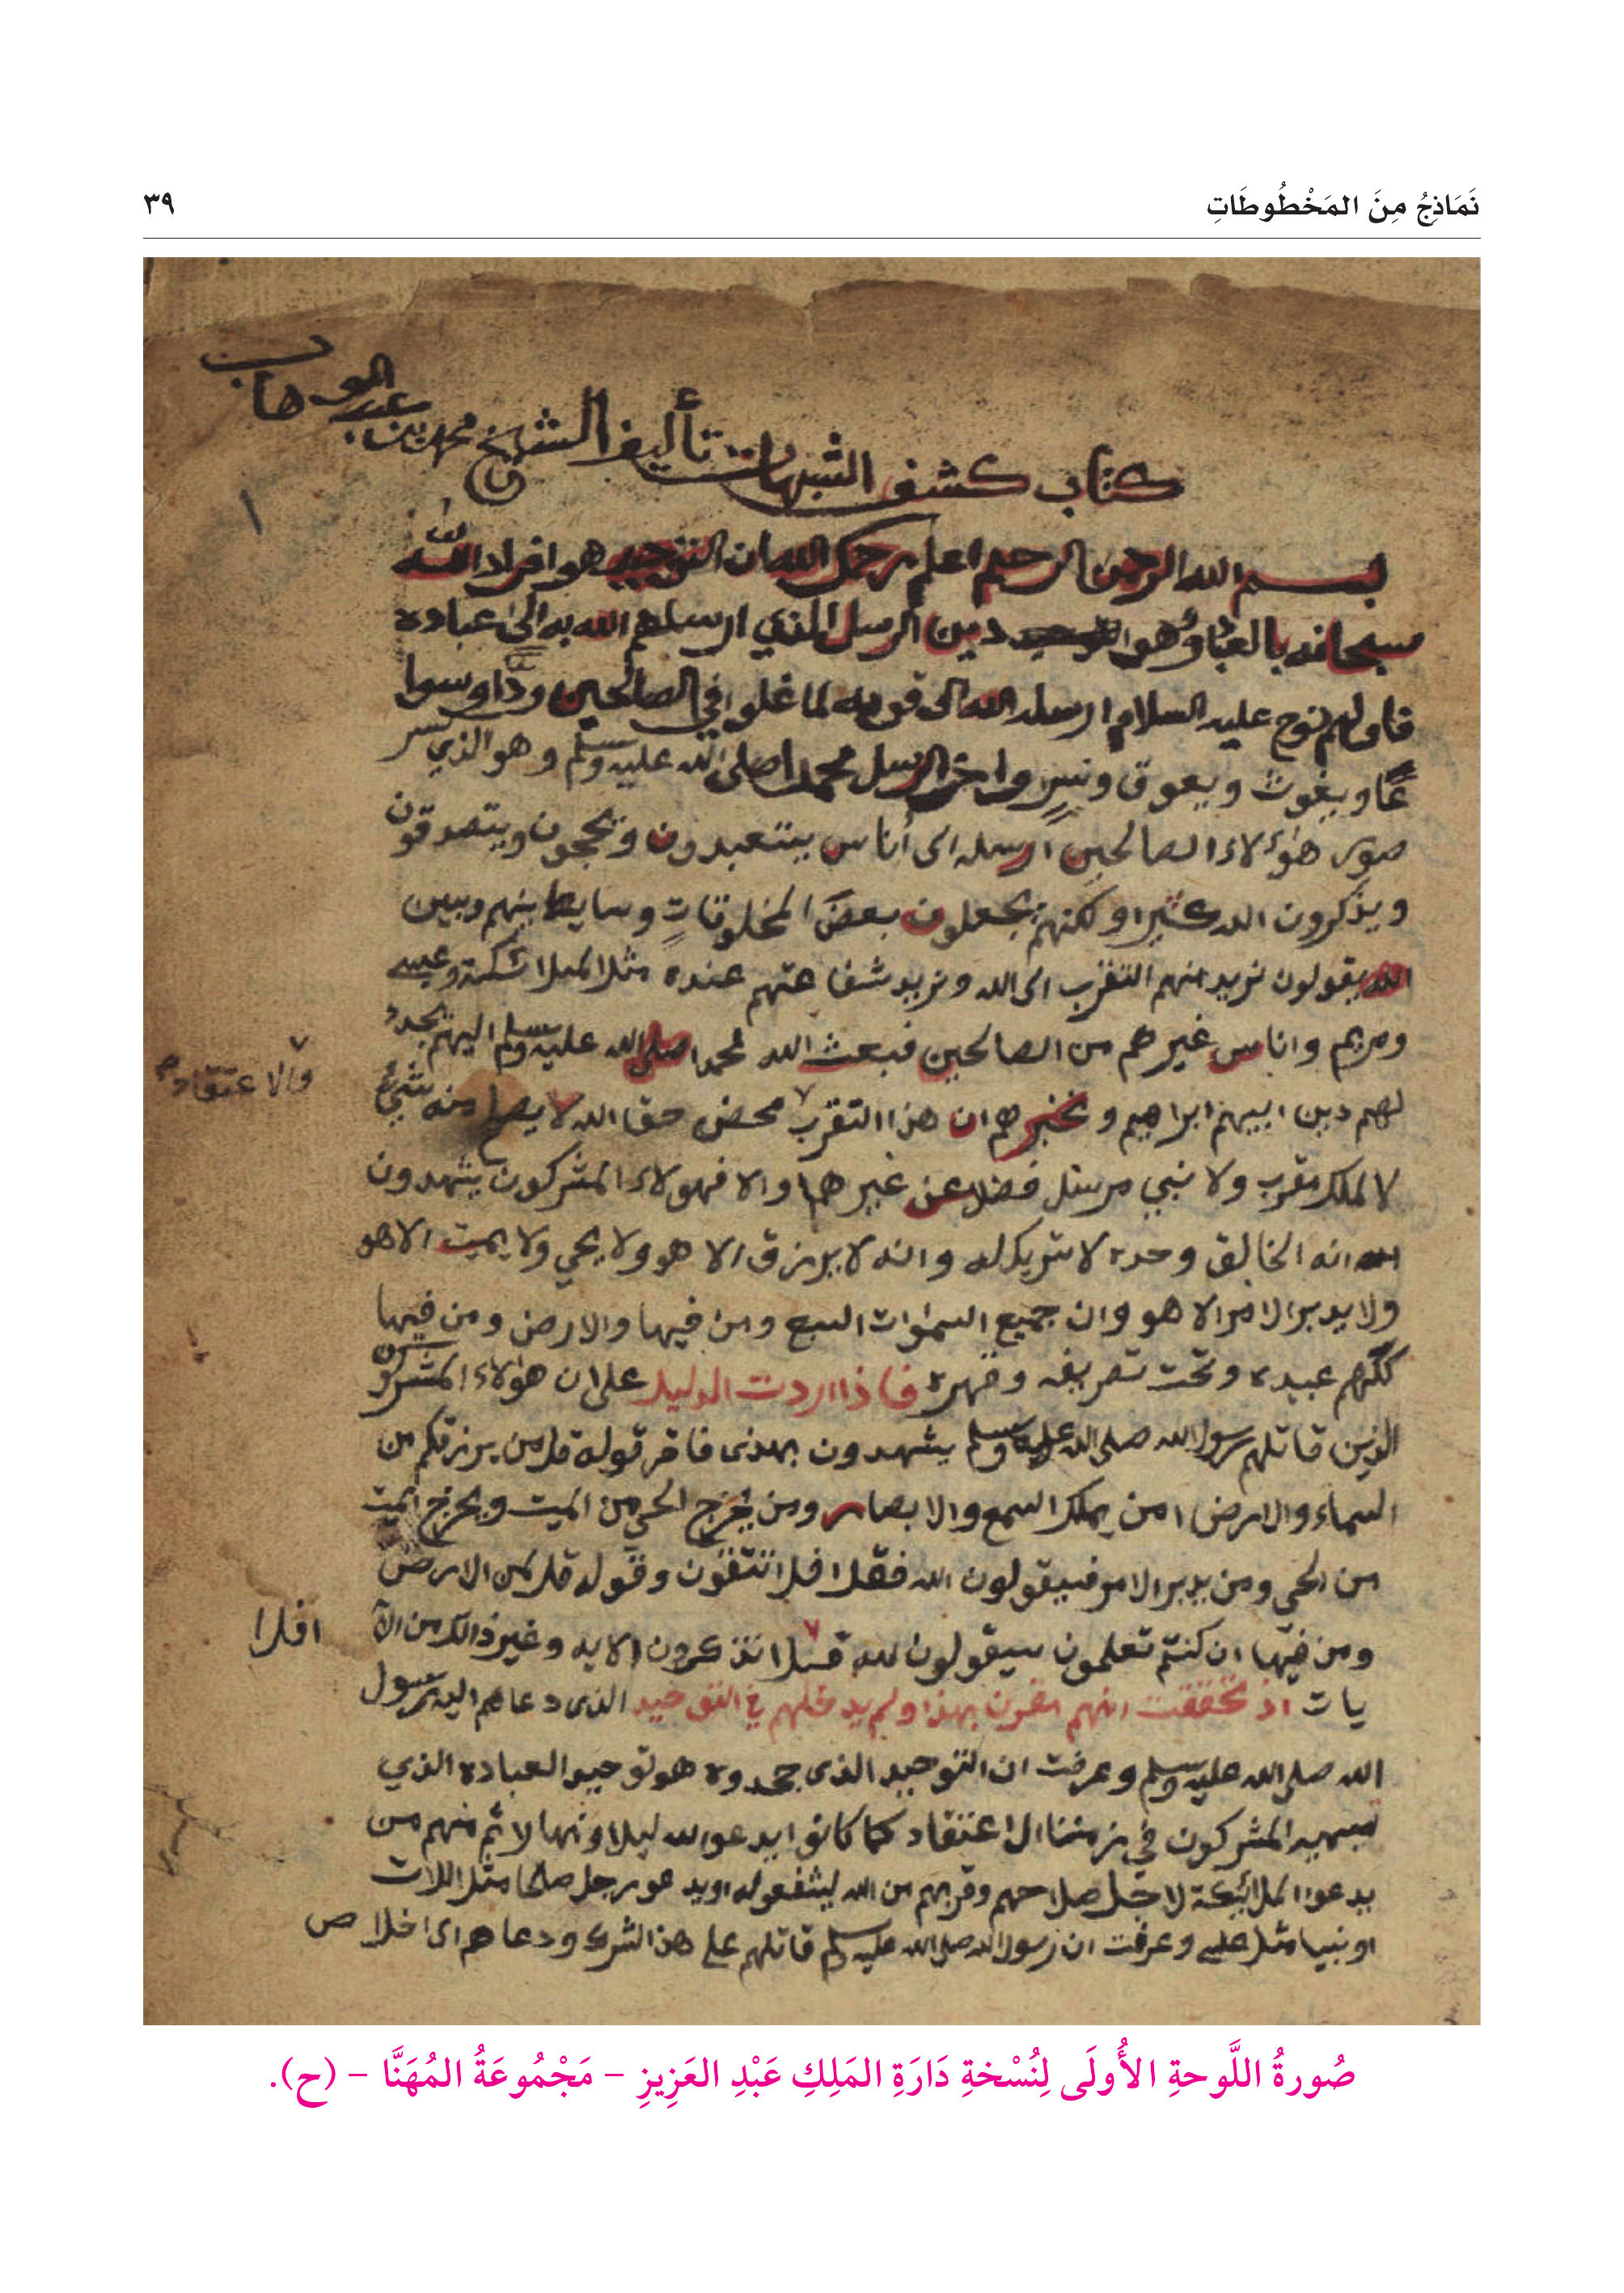 نَمَاذِجُ مِنَ المَخْطُوطَاتِ
٣٩
كتاب كشف الشبهات تأليف الشيخ محمد بن عبد الوهاب
١
بسم الله الرحمن الرحيم اعلم رحمك الله ان التوحيد هو افراد الله
سبحانه بالعبادة وهو دين الرسل الذي ارسلهم الله به الى عباده
فاولهم نوح عليه السلام ارسله الله الى قومه لما غلوا في الصالحين ودًّا وسوا
عًا ويغوث ويعوق ونسرٍ واخر الرسل محمدا صلى الله عليه وسلم وهو الذي كسر
صور هؤلاء الصالحين ارسله الى أناس يتعبدون ويحجون ويتصدقون
ويذكرون الله كثيرا ولكنهم يجعلون بعضَ المخلوقاتِ وسايط بينهم وبين
الله يقولون نريد منهم التقرب الى الله ونريد شفاعتهم عنده مثل الملائكة وعيسى
ومريم واناس غيرهم من الصالحين فبعث الله محمدا صلى الله عليه وسلم اليهم يجدد
لهم دين ابيهم ابراهيم ويخبرهم ان هذا التقرب محض حق الله لا يصلح منه شيئ
والاعتقاد
لا لملك مقرب ولا نبي مرسل فضلا عن غيرهما والا فهولاء المشركون يشهدون
انه الخالق وحده لا شريك له وانه لا يرزق الا هو ولا يحي ولا يميت الا هو
ولا يدبر الامر الا هو وان جميع السموات السبع ومن فيها والارض ومن فيها
كلهم عبيده وتحت تصريفه وقهره فاذا اردت الدليل على ان هؤلاء المشركون
الذين قاتلهم رسول الله صلى الله عليه وسلم يشهدون بهذى فاقر قوله قل من يرزقكم من
السماء والارض امن يملك السمع والابصار ومن يخرج الحي من الميت ويخرج الميت
من الحي ومن يدبر الامر فسيقولون الله فقل افلا تتقون وقوله قل لمن الارض
ومن فيها ان كنتم تعلمون سيقولون لله قل تذكرون الايه وغير ذالك من الآ
افلا
يات اذ تحققت انهم مقرون بهذا ولم يدخلهم في التوحيد الذى دعاهم اليه رسول
الله صلى الله عليه وسلم وعرفت ان التوحيد الذى جحدوه هو توحيد العباده الذي
يسميه المشركون في زمننا الاعتقاد كما كانوا يدعو الله ليلا ونهارا ثم منهم من
يدعوا الملائكة لاجل صلاحهم وقربهم من الله ليشفعو له او يدعو رجل صالحا مثل اللات
او نبيا مثل عيسى وعرفت ان رسول الله صلى الله عليه وسلم قاتلهم على هذ الشرك ودعاهم الى اخلاص
صُورةُ اللَّوحةِ الأُولَى لِنُسْخةِ دَارَةِ المَلِكِ عَبْدِ العَزِيزِ – مَجْمُوعَةُ المُهَنَّا – (ح).